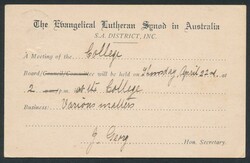 The Evangelical Lutheran Synod in Australia
S.A. DISTRICT, INC.
A Meeting of the College
Board/Council/Committee will be held on Thursday April 22nd at
2 p.m. at the College
Business: Various matters
J. Georg
Hon. Secretary.